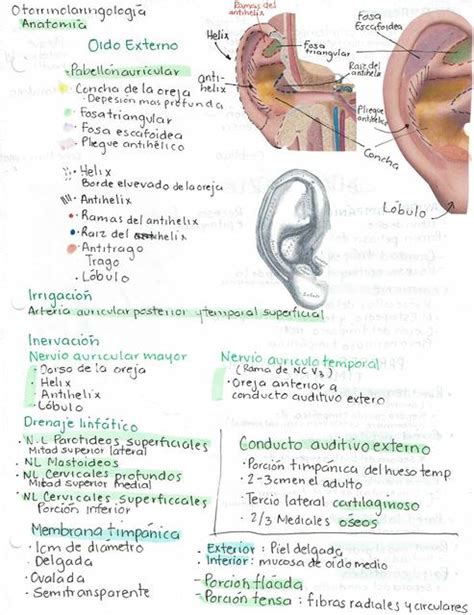 Otorrinolaringología
Anatomía
Oído Externo
• Pabellón auricular
• Concha de la oreja
- Depesión mas profunda
• Fosa triangular
• Fosa escafoidea
• Pliegue antihélico
• Helix
Borde elvevado de la oreja
• Antihelix
• Ramas del antihelix
• Raíz del helix
• Antitrago
Trago
• Lóbulo
Ramas del antihelix
Helix
anti-helix
Fosa triangular
Fosa Escafoidea
Raiz del antihelix
Pliegue antihélico
Concha
Lóbulo
Irrigación
Arteria auricular posterior y temporal superficial
Inervación
Nervio auricular mayor
• Dorso de la oreja
• Helix
• Antihelix
• Lóbulo
Nervio auriculo temporal
(Rama de NC V3)
• Oreja anterior a
conducto auditivo extero
Drenaje linfático
• N.L Parotideos superficiales
Mitad superior lateral
• NL Mastoideos
• NL Cervicales profundos
Mitad superior medial
• NL Cervicales superficcales
Porción inferior
Conducto auditivo externo
• Porción timpánica del hueso temp
• 2-3 cm en el adulto
• Tercio lateral cartilaginoso
• 2/3 Mediales oseos
Membrana timpánica
• 1cm de diámetro
• Delgada
• Ovalada
• Semitransparente
• Exterior: Piel delgada
• Interior: mucosa de oído medio
- Porción flácida
- Porción tensa: fibras radiales y circulares